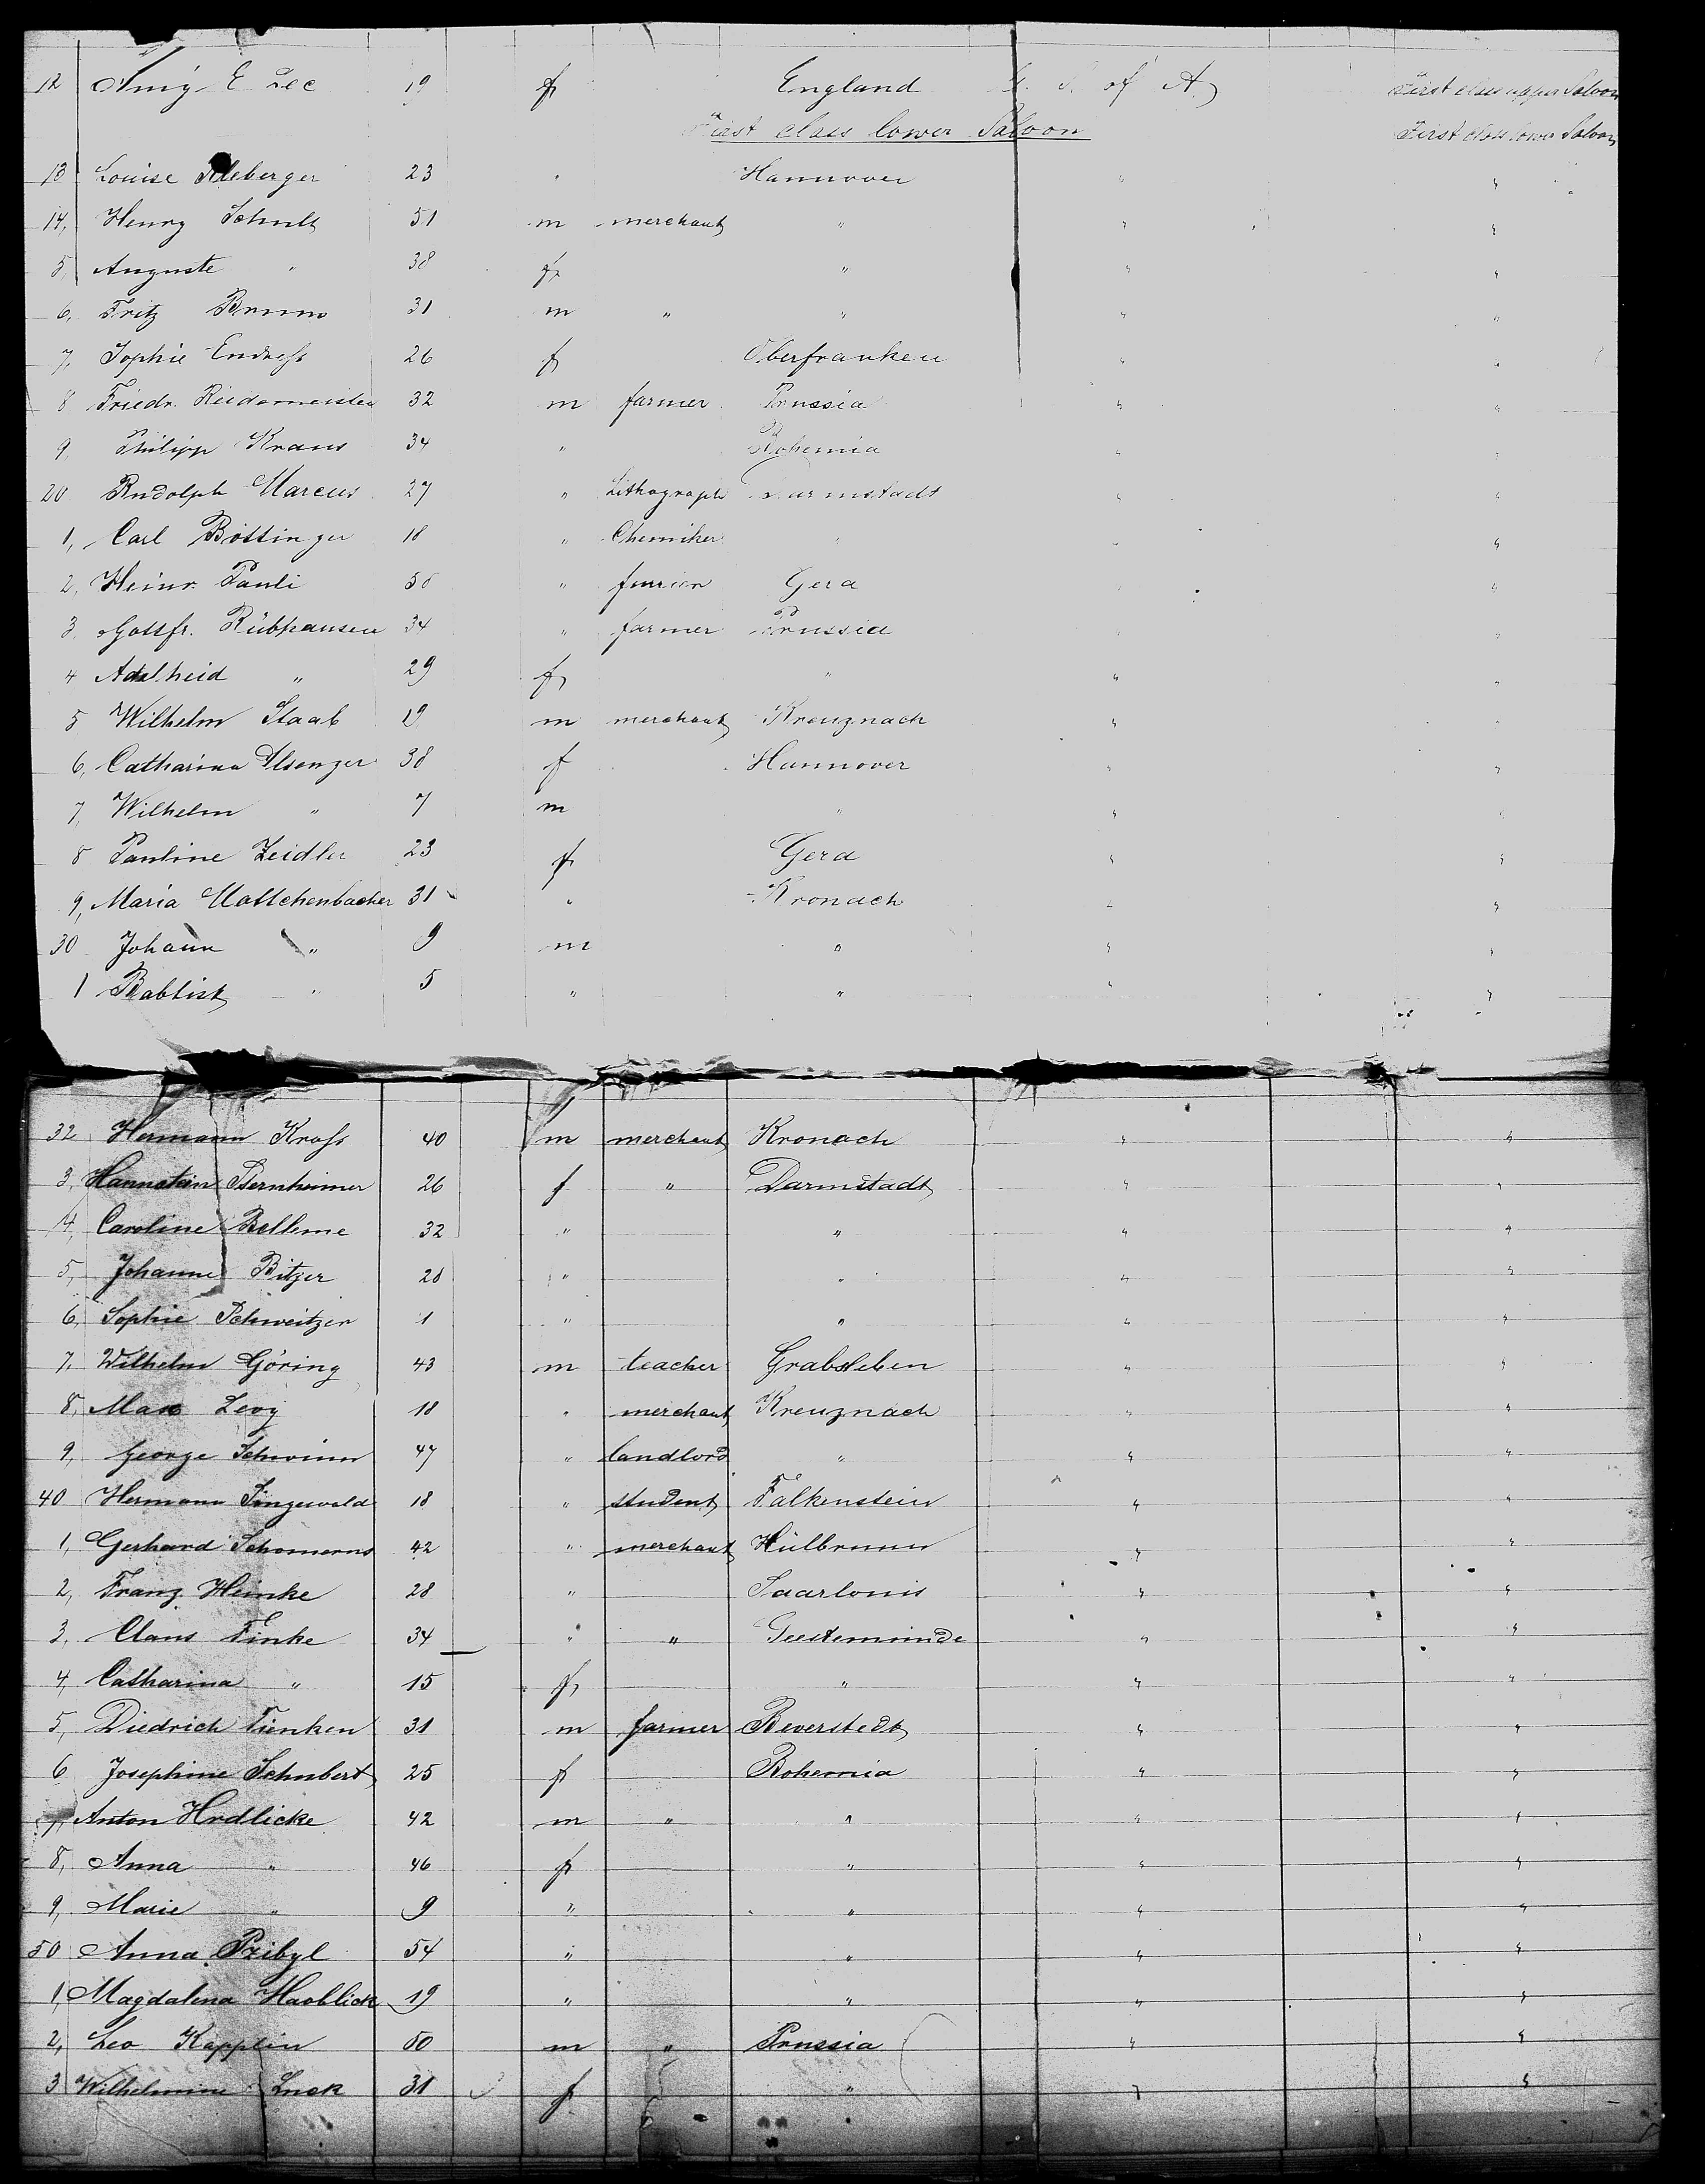 12 Amy E Lee 19 f England U. S. of A. First class upper Saloon
First class lower Saloon First class lower Saloon
13 Louise 23 " Hannover " "
14, Henry Schult 51 m merchant " " "
5, Auguste " 38 f " " "
6, Fritz Bruno 31 m " " " "
7, Sophie Endress 26 f Oberfranken " "
8 Friedr. Riedemeister 32 m farmer Prussia " "
9, Philipp Kraus 34 " Bohemia " "
20 Rudolph Marcus 27 " Lithograph Darmstadt " "
1, Carl Böttinger 18 " Chemiker " " "
2, Heinr. Pauli 56 " Gera " "
3, Gottfr. Rübhausen 34 " farmer Prussia " "
4 Adelheid " 29 f " " "
5 Wilhelm Staab 19 m merchant Kreuznach " "
6, Catharina 38 f Hannover " "
7, Wilhelm " 7 m " " "
8 Pauline Zeidler 23 f Gera " "
9, Maria 31 " Kronach " "
30 Johann " 9 m " " "
1 Babtist " 5 " " " "
32 Hermann Kross 40 m merchant Kronach " "
3, Bernheimer 26 f " Darmstadt " "
4, Caroline Belleme 32 " " " "
5, Johanne Bitzer 28 " " " "
6, Sophie Schweitzer 1 " " " "
7, Wilhelm Göring 43 m teacher Grabsleben " "
8, Max Levy 18 " merchant Kreuznach " "
9, George Schwinn 47 " landlord " " "
40 Hermann Singewald 18 " student Falkenstein " "
1, Gerhard Schomerus 42 " merchant " "
2, Franz Heinke 28 " Saarlouis " "
3, Claus Finke 34 " " Geestemünde " "
4, Catharina " 15 f " " "
5, Diedrich Tienken 31 m farmer Beverstedt " "
6 Josephine Schubert 25 f Bohemia " "
7, Anton Hrdlicke 42 m " " " "
8, Anna " 46 f " " "
9, Marie " 9 " " " "
50 Anna Pribyl 54 " " " "
1, Magdalena Havblick 19 " " " "
2, Leo Kapplin 50 m " Prussia " "
3 Wilhelmine Luck 31 f " " "